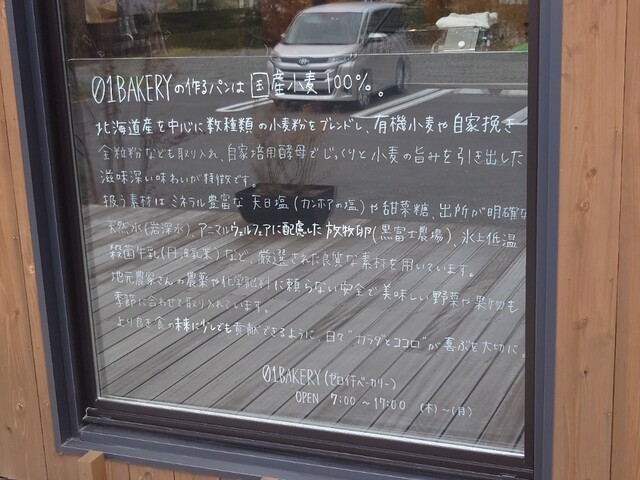 01BAKERYの作るパンは国産小麦100%。
北海道産を中心に数種類の小麦粉をブレンドし、有機小麦や自家挽き
全粒粉なども取り入れ、自家培用酵母でじっくりと小麦の旨みを引き出した
滋味深い味わいが特徴です。
扱う素材はミネラル豊富な天日塩(カンホアの塩)や甜菜糖、出所が明確な
天然水(岩深水)、アニマルウェルフェアに配慮した放牧卵(黒富士農場)、氷上低温
殺菌牛乳(丹波乳業)など、厳選された良質な素材を用いています。
地元農家さんの農薬や化学肥料に頼らない安全で美味しい野菜や果物も
季節に合わせて取り入れています。
より良き食の未来に少しでも貢献できるように、日々"カラダとココロ"が喜ぶを大切に。
01BAKERY(ゼロイチベーカリー)
OPEN 7:00〜17:00 (木)〜(月)